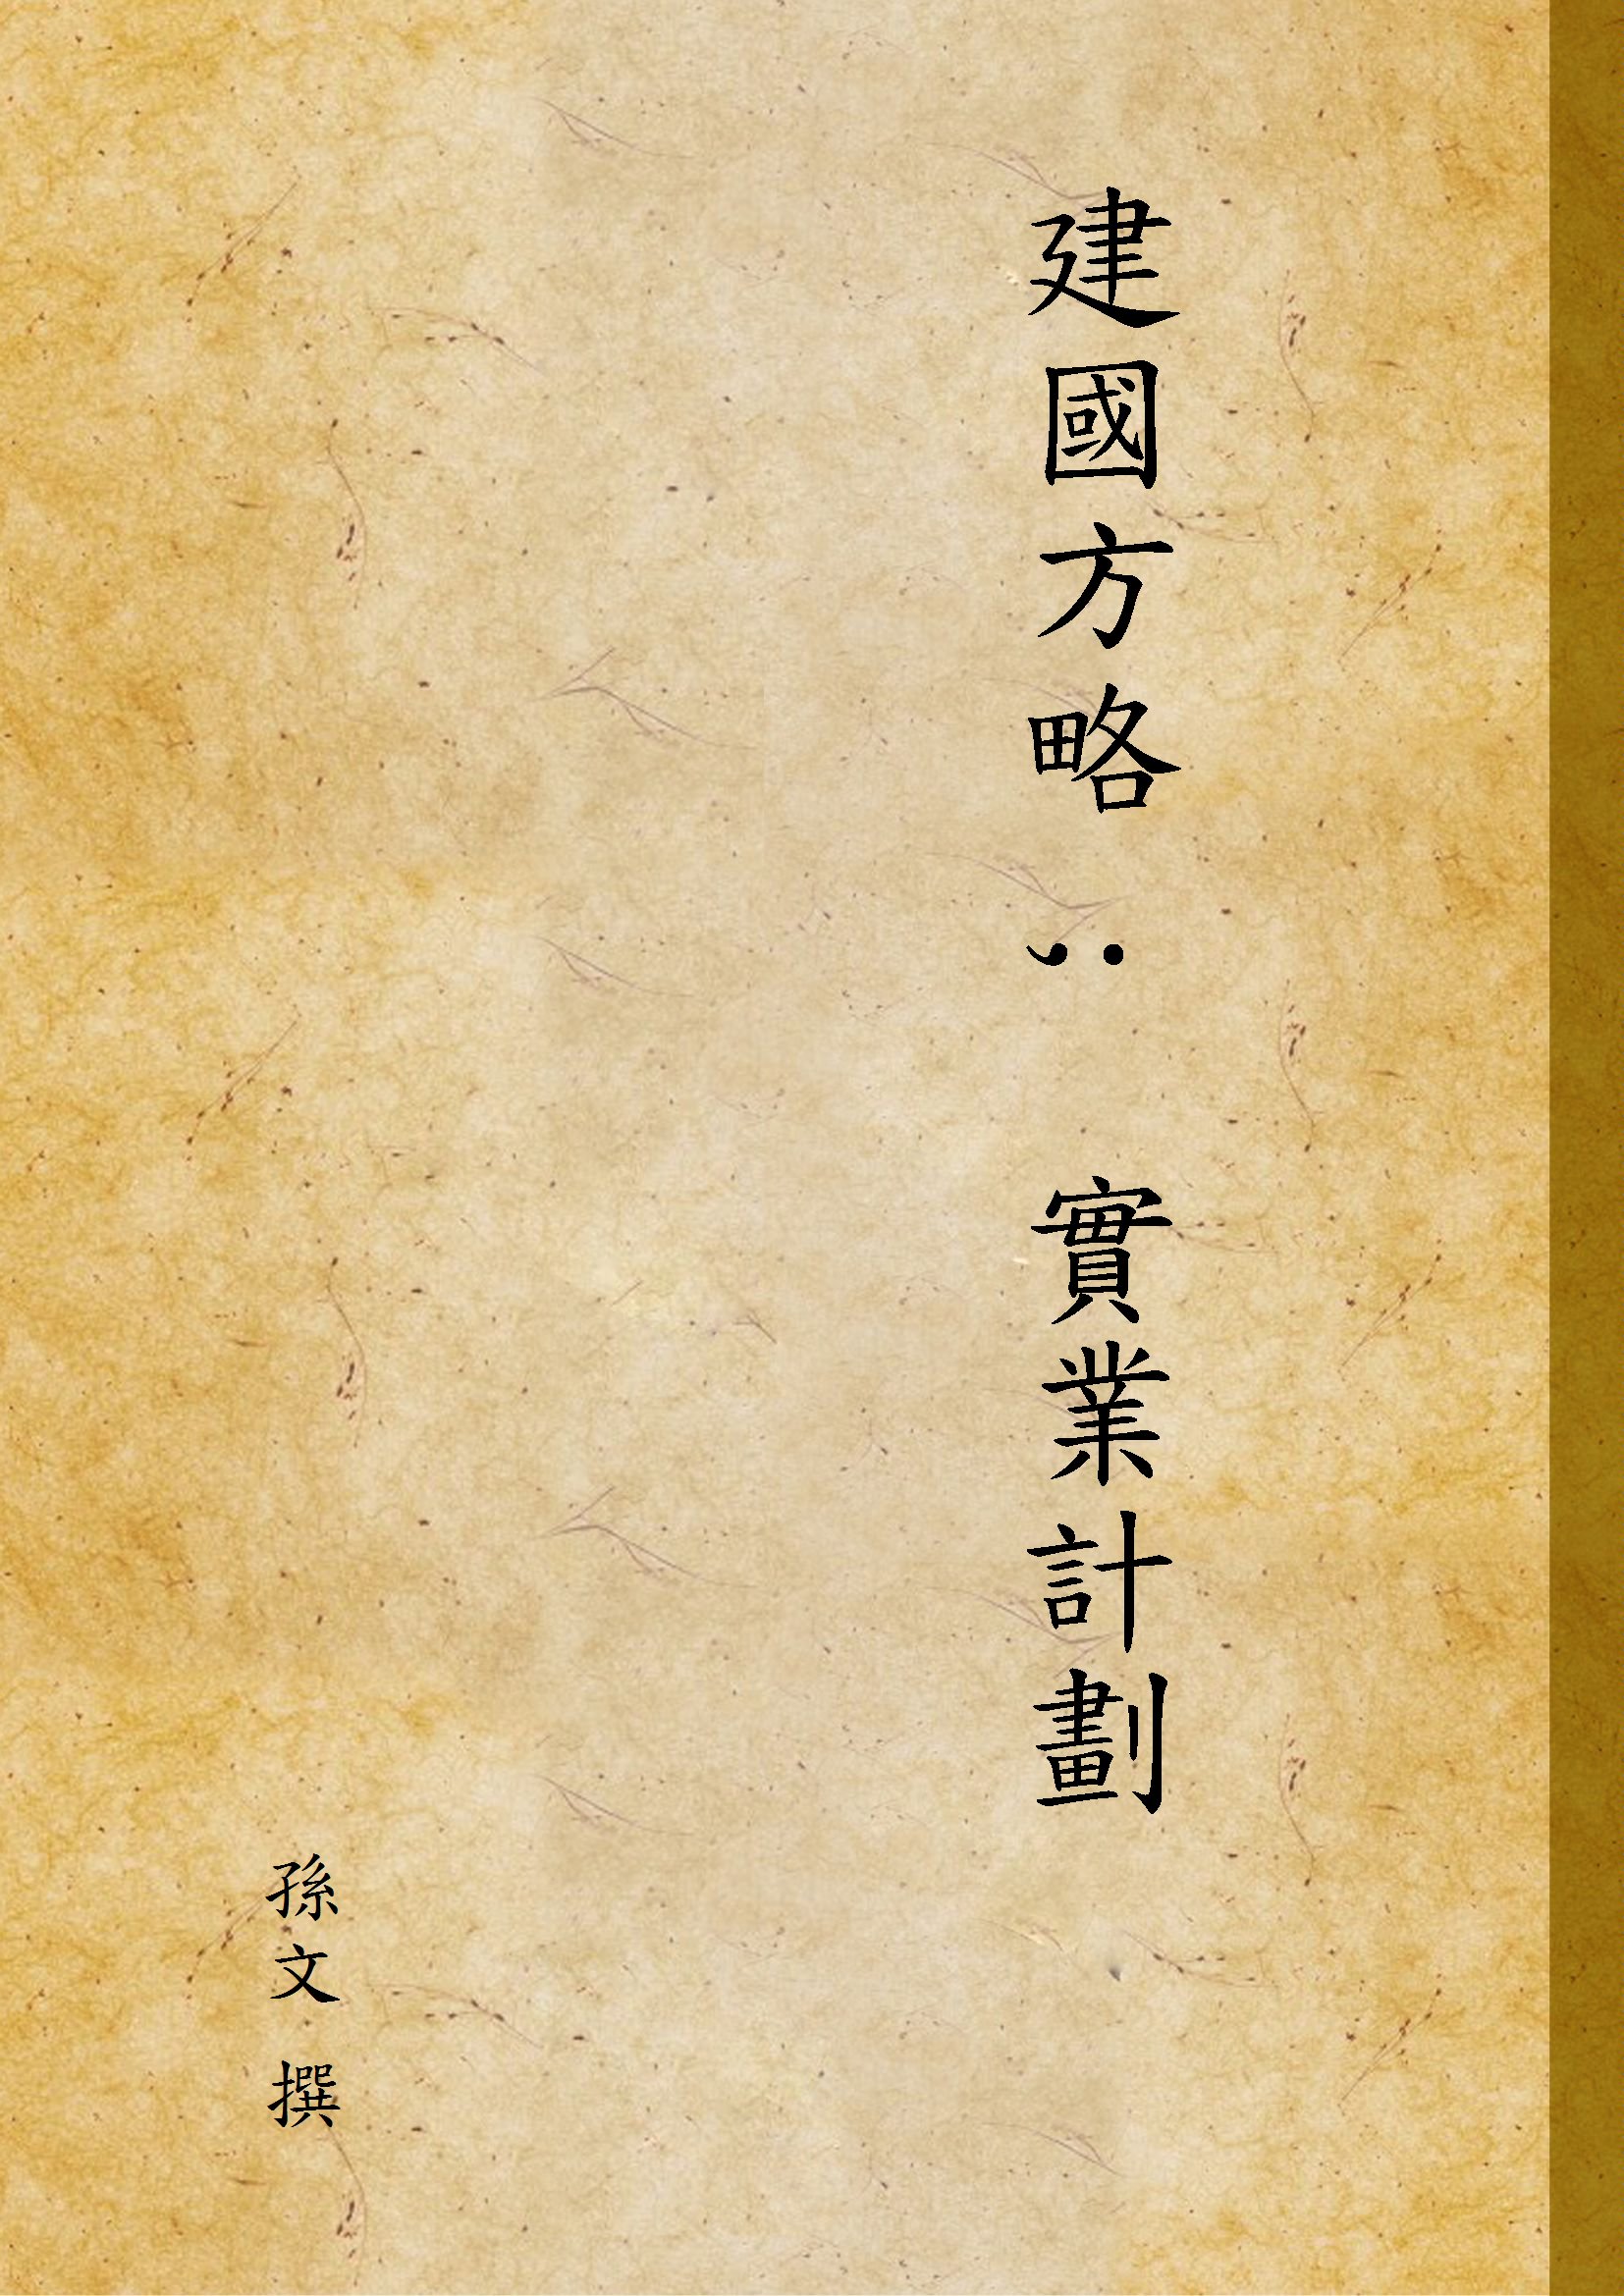 建國方略；實業計劃
孫文 撰